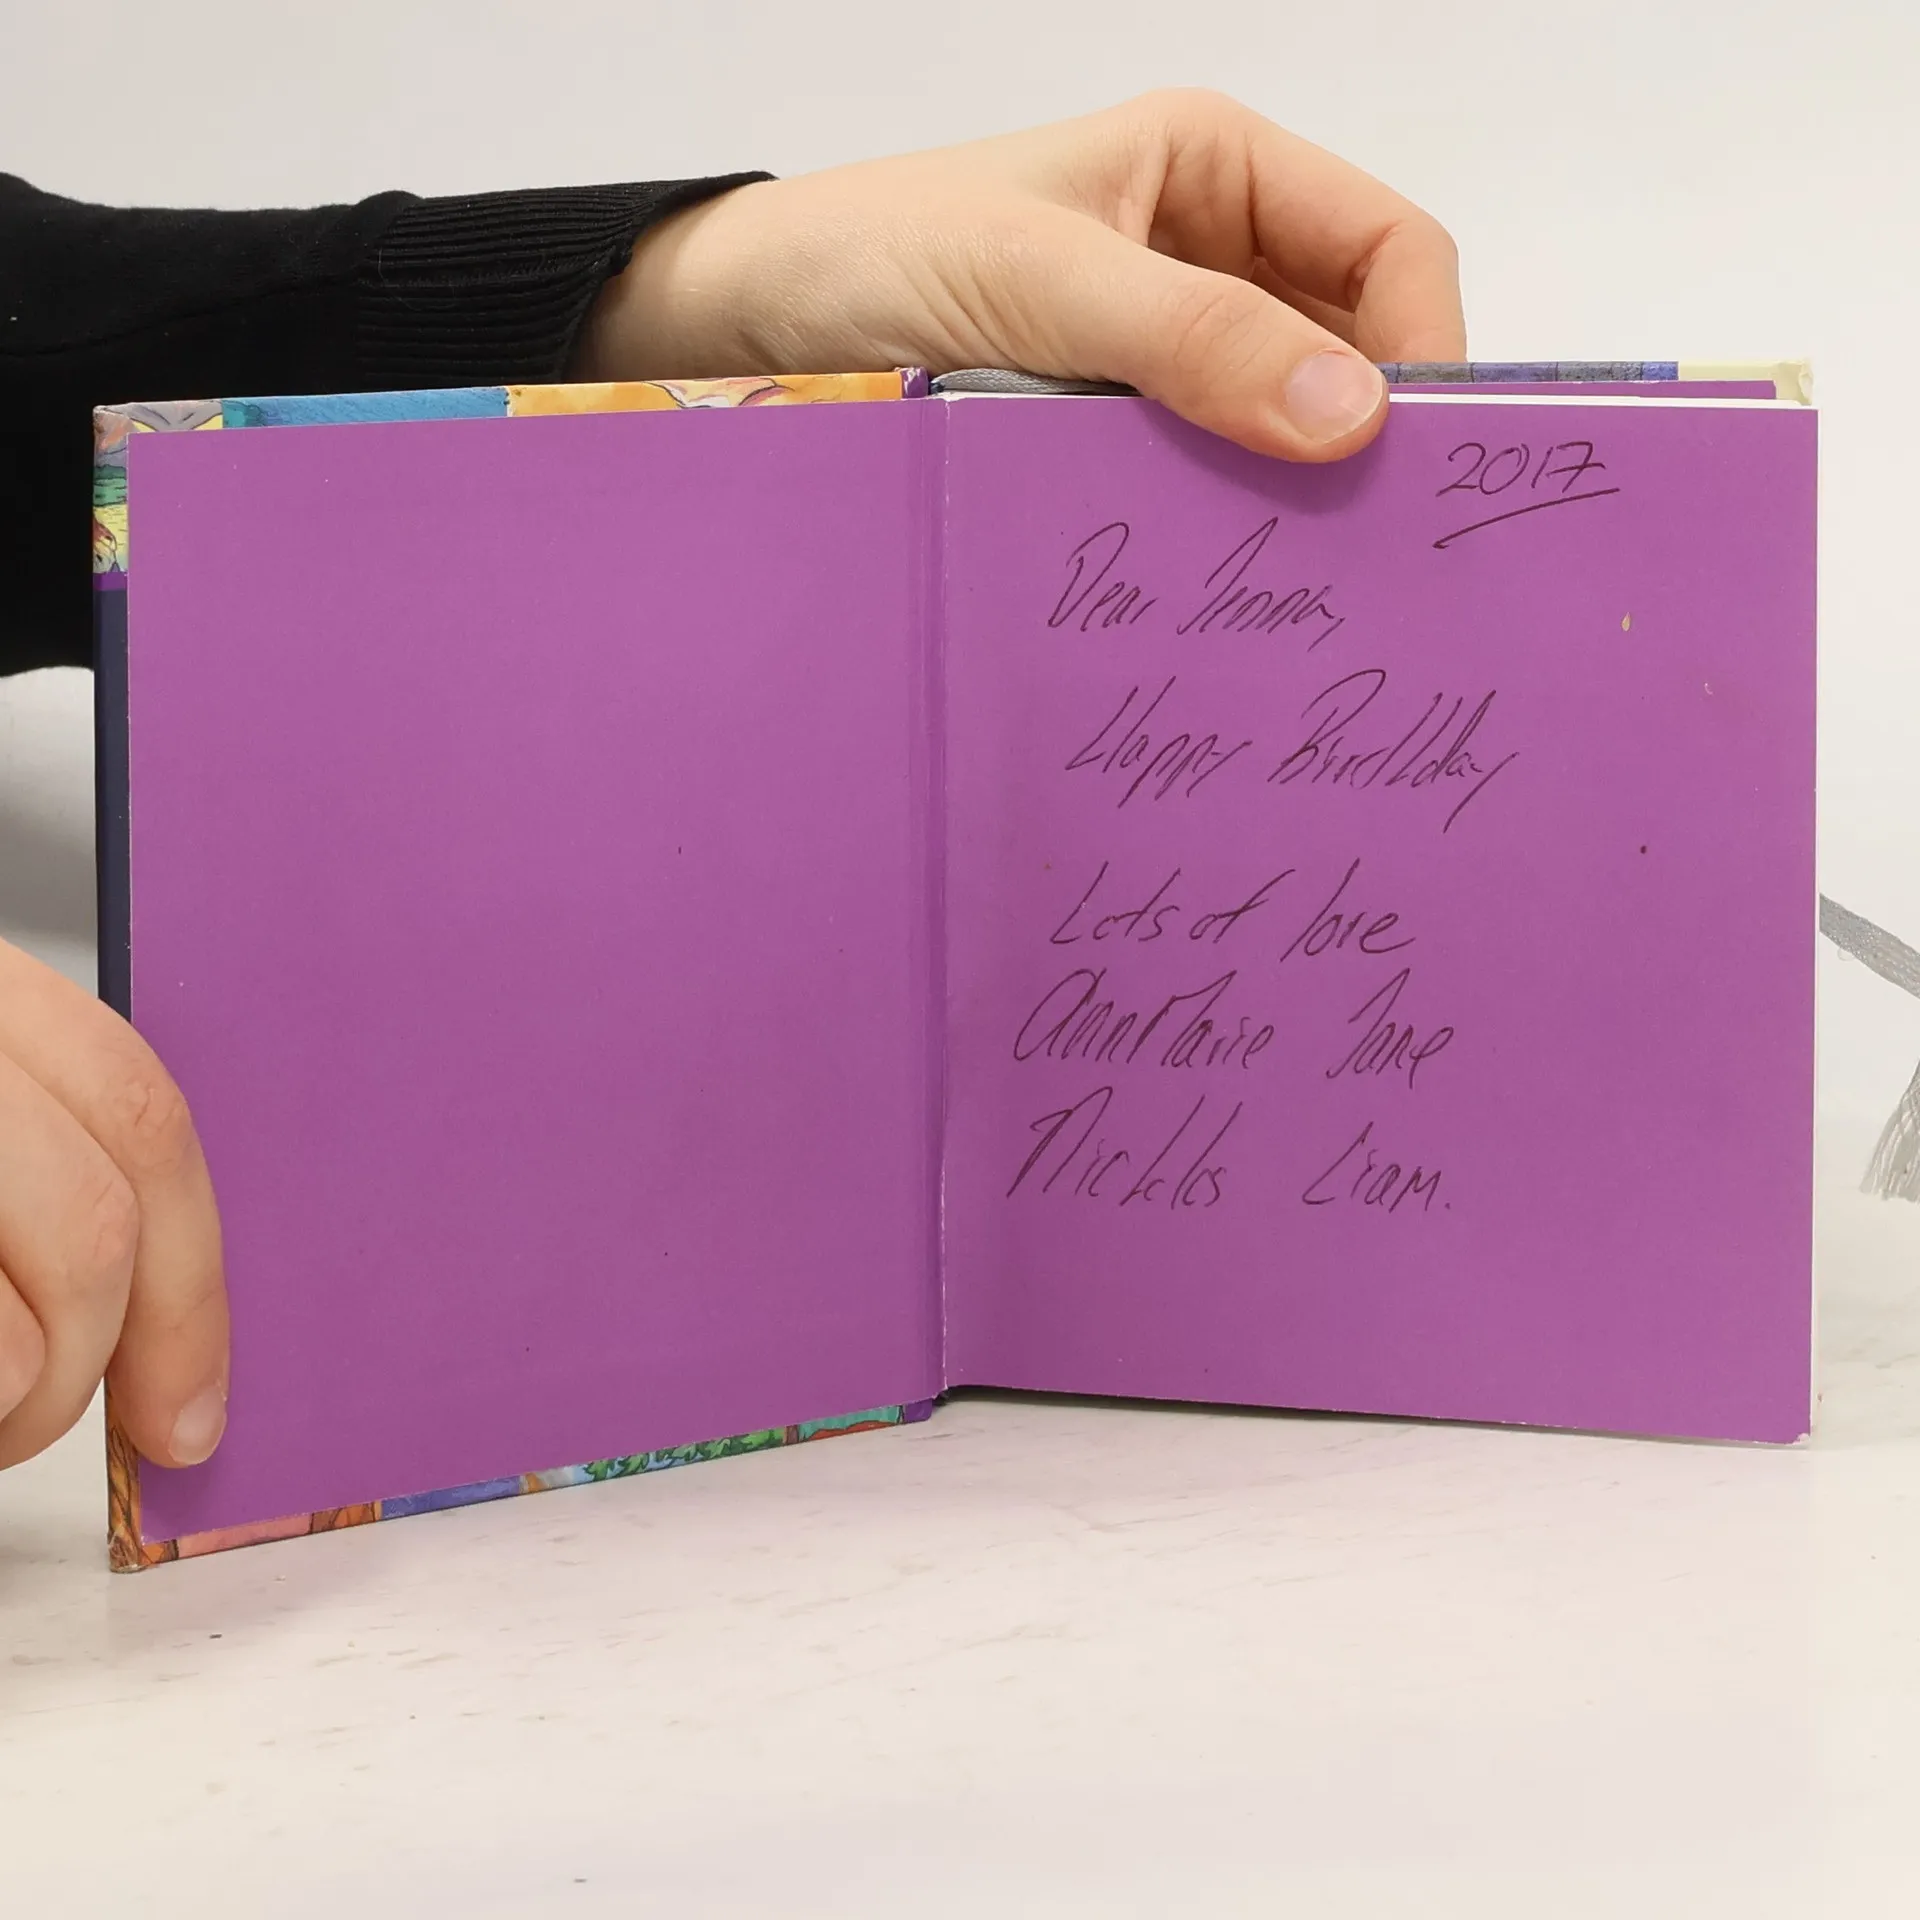 2017
Dear Jenna,
Happy Birthday
Lots of love
AnnMarie Jane
Nicklas Liam.